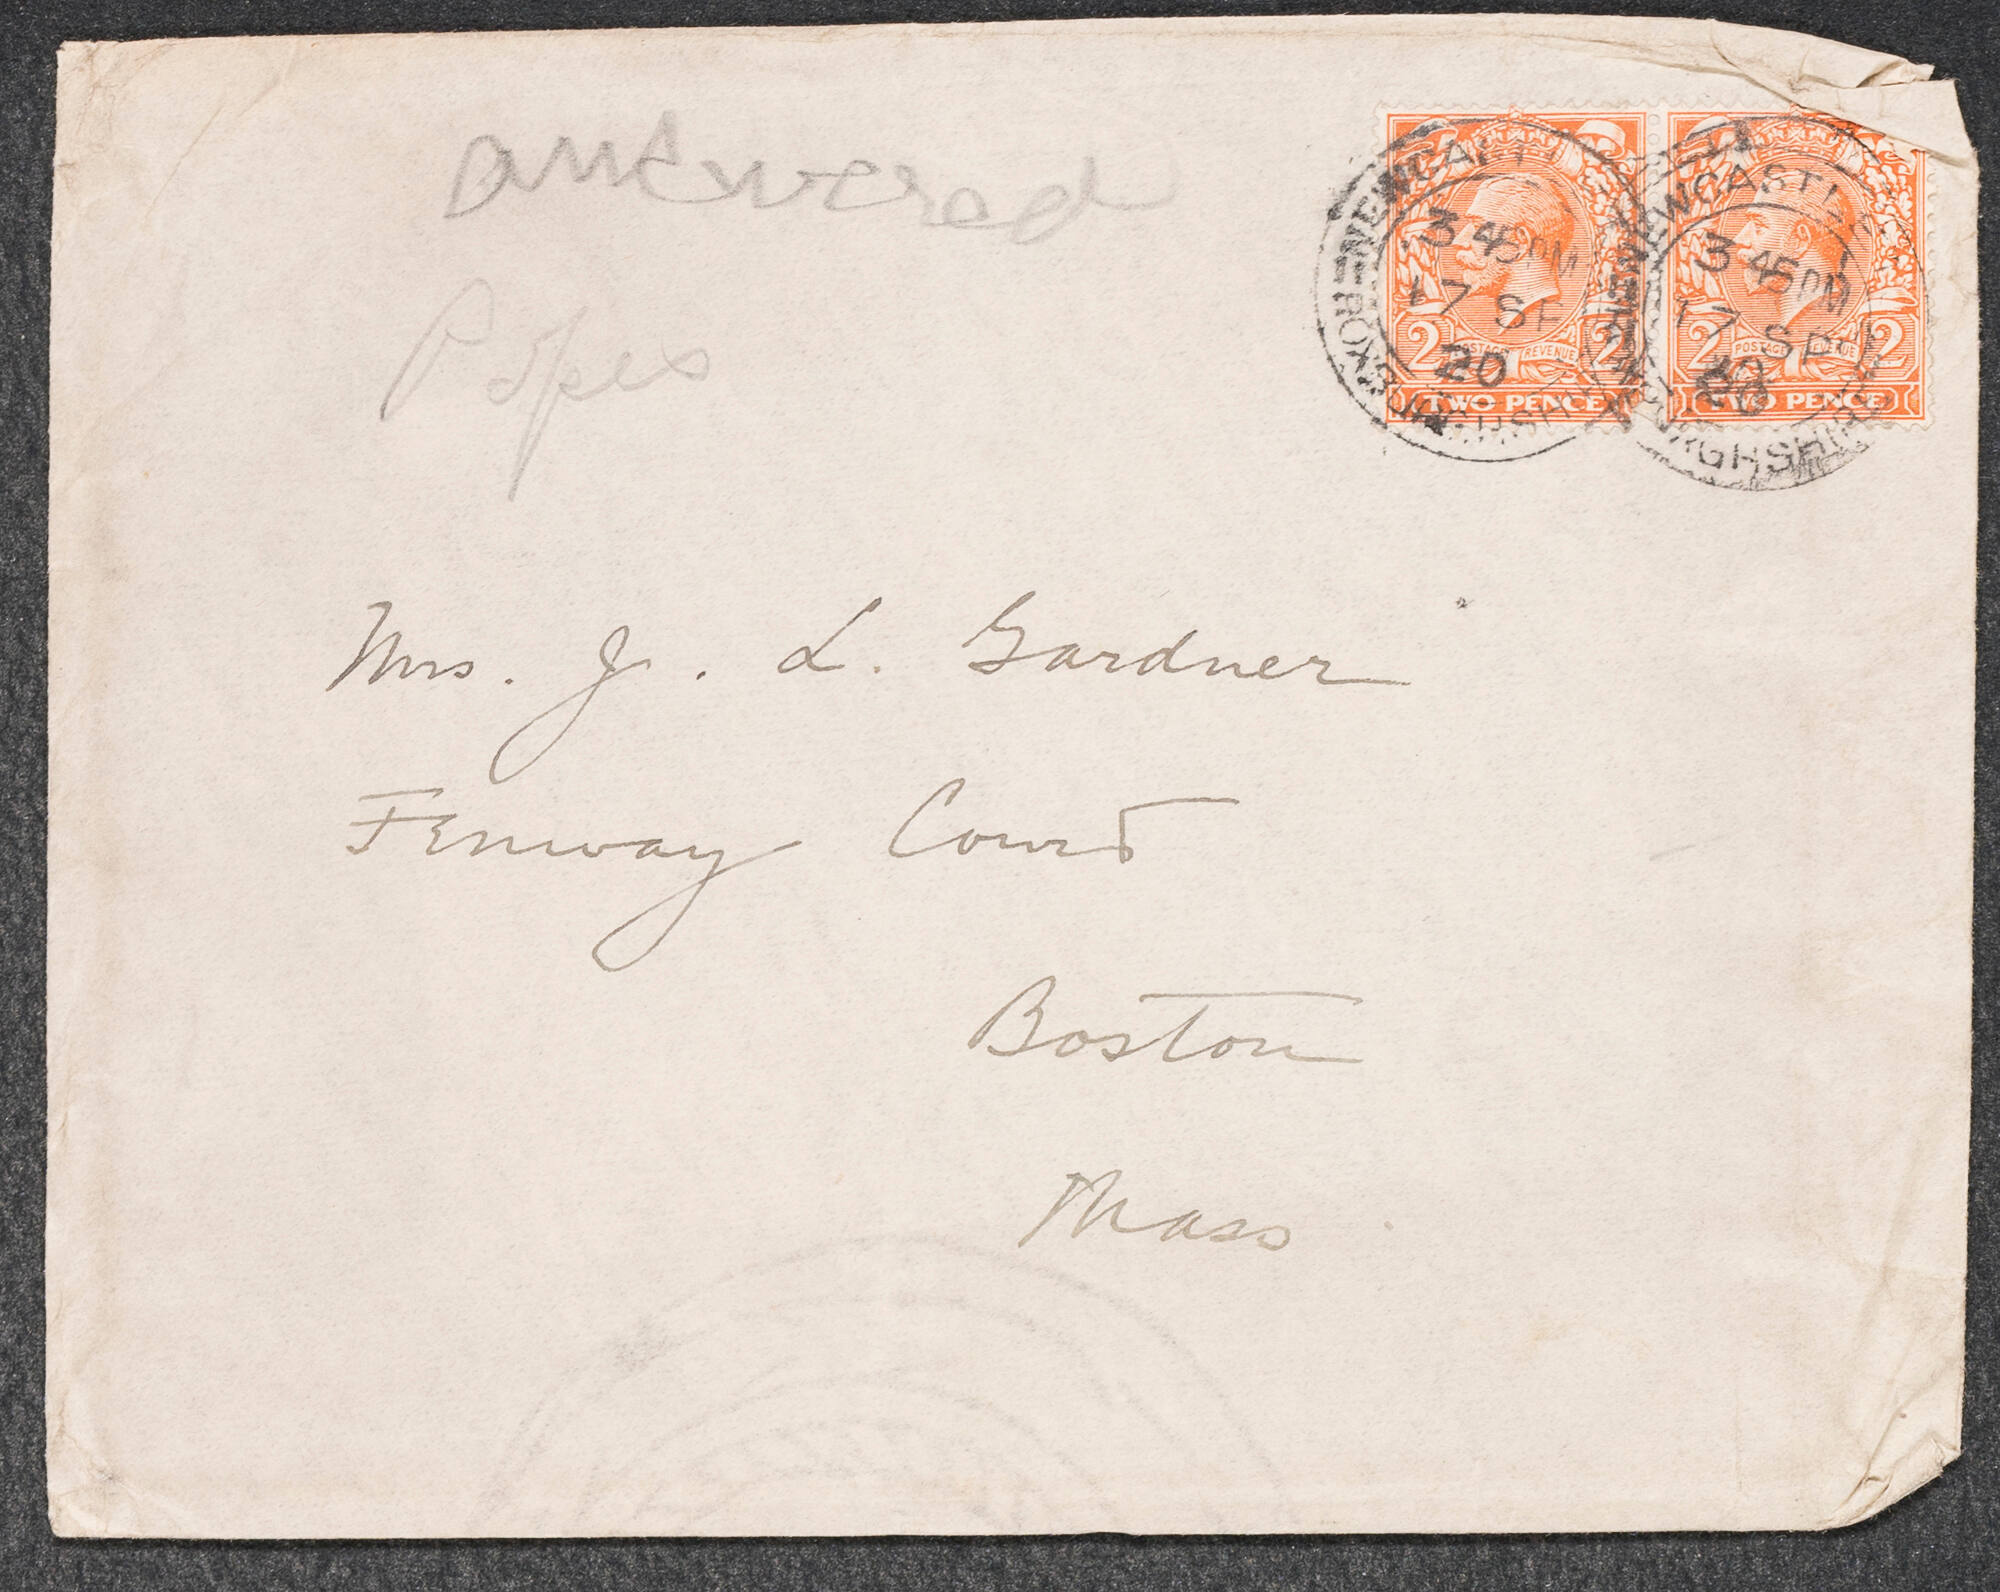 answered
Popes
NEWCASTLETON ROXBURGHSHIRE
3 45 PM
17 SP
20
2 POSTAGE REVENUE 2
TWO PENCE
NEWCASTLETON ROXBURGHSHIRE
3 45 PM
17 SP
20
2 POSTAGE REVENUE 2
TWO PENCE
Mrs. J. L. Gardner
Fenway Court
Boston
Mass